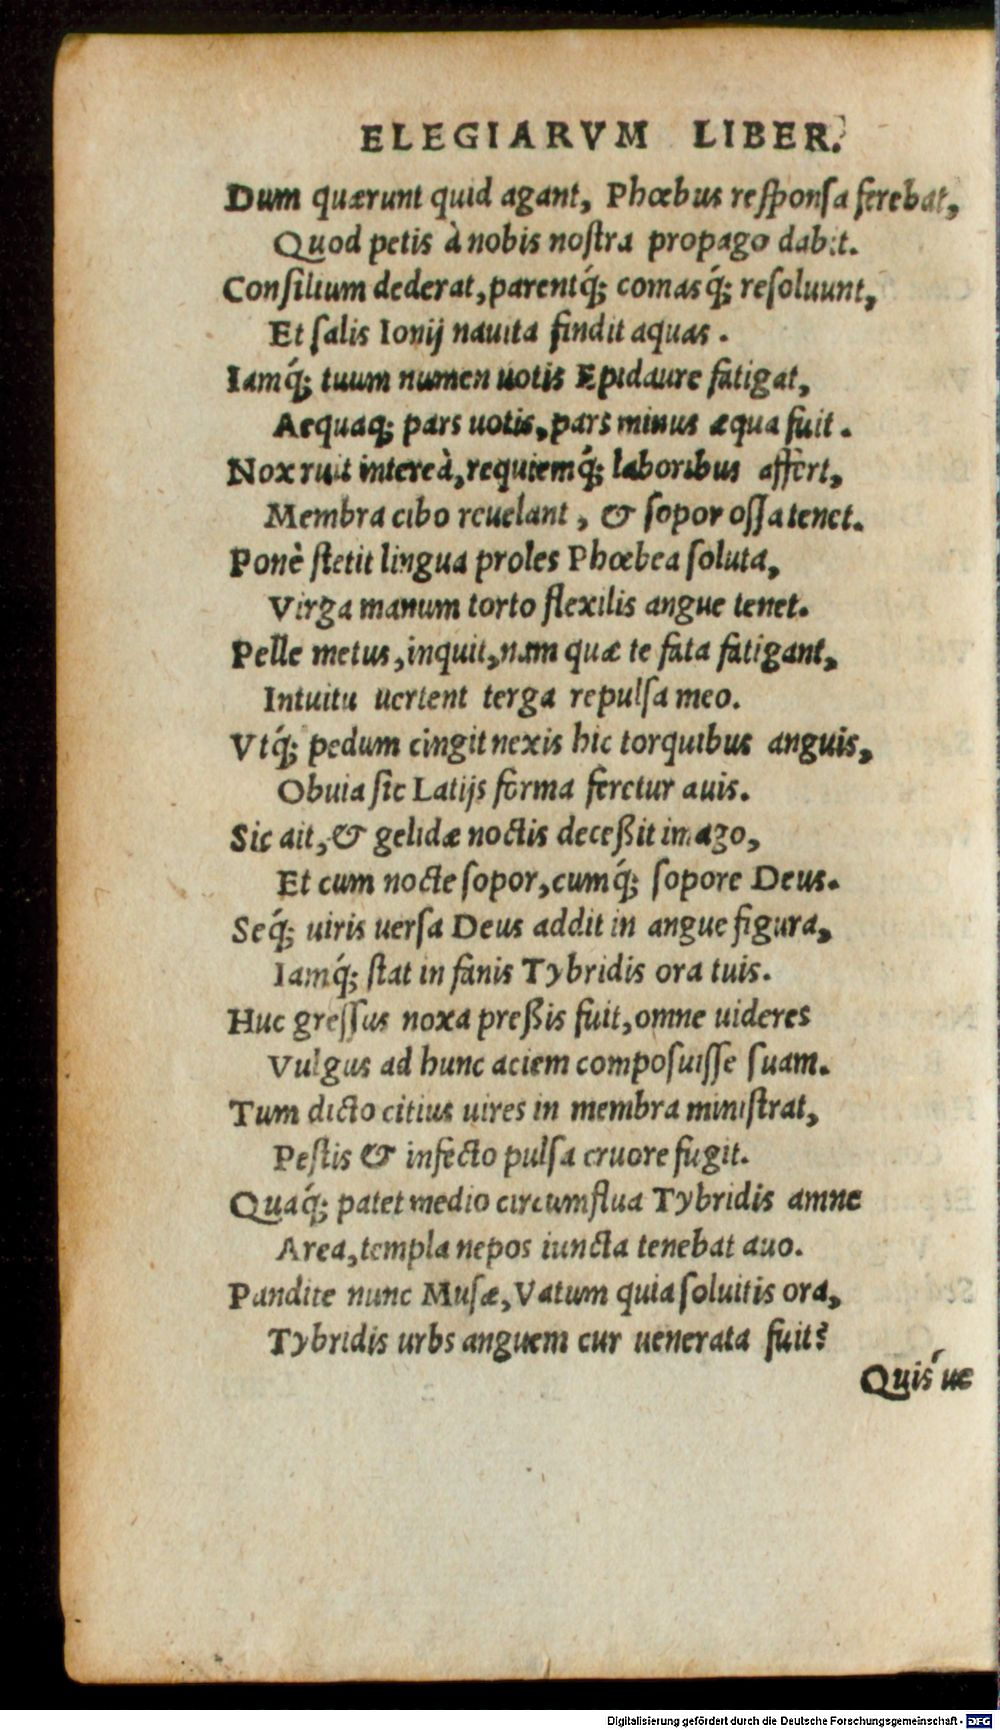 ELEGIARVM LIBER.
Dum quærunt quid agant, Phœbus responsa ferebat,
Quod petis à nobis nostra propago dabit.
Consilium dederat, parentq́; comasq́; resoluunt,
Et salis Ionij nauita findit aquas.
Iamq́; tuum numen uotis Epidaure fatigat,
Aequaq; pars uotis, pars minus æqua fuit.
Nox ruit intereà, requiemq́; laboribus affert,
Membra cibo reuelant, & sopor ossa tenet.
Ponè stetit lingua proles Phœbea soluta,
Virga manum torto flexilis angue tenet.
Pelle metus, inquit, nam quæ te fata fatigant,
Intuitu uertent terga repulsa meo.
Vtq́; pedum cingit nexis hic torquibus anguis,
Obuia sic Latijs forma feretur auis.
Sic ait, & gelidæ noctis deceßit imago,
Et cum nocte sopor, cumq́; sopore Deus.
Seq́; uiris uersa Deus addit in angue figura,
Iamq́; stat in fanis Tybridis ora tuis.
Huc gressus noxa preßis fuit, omne uideres
Vulgus ad hunc aciem composuisse suam.
Tum dicto citius uires in membra ministrat,
Pestis & infecto pulsa cruore fugit.
Quaq́; patet medio circumflua Tybridis amne
Area, templa nepos iuncta tenebat auo.
Pandite nunc Musæ, Vatum quia soluitis ora,
Tybridis urbs anguem cur uenerata fuit?
Quis'ue
Digitalisierung gefördert durch die Deutsche Forschungsgemeinschaft - DFG